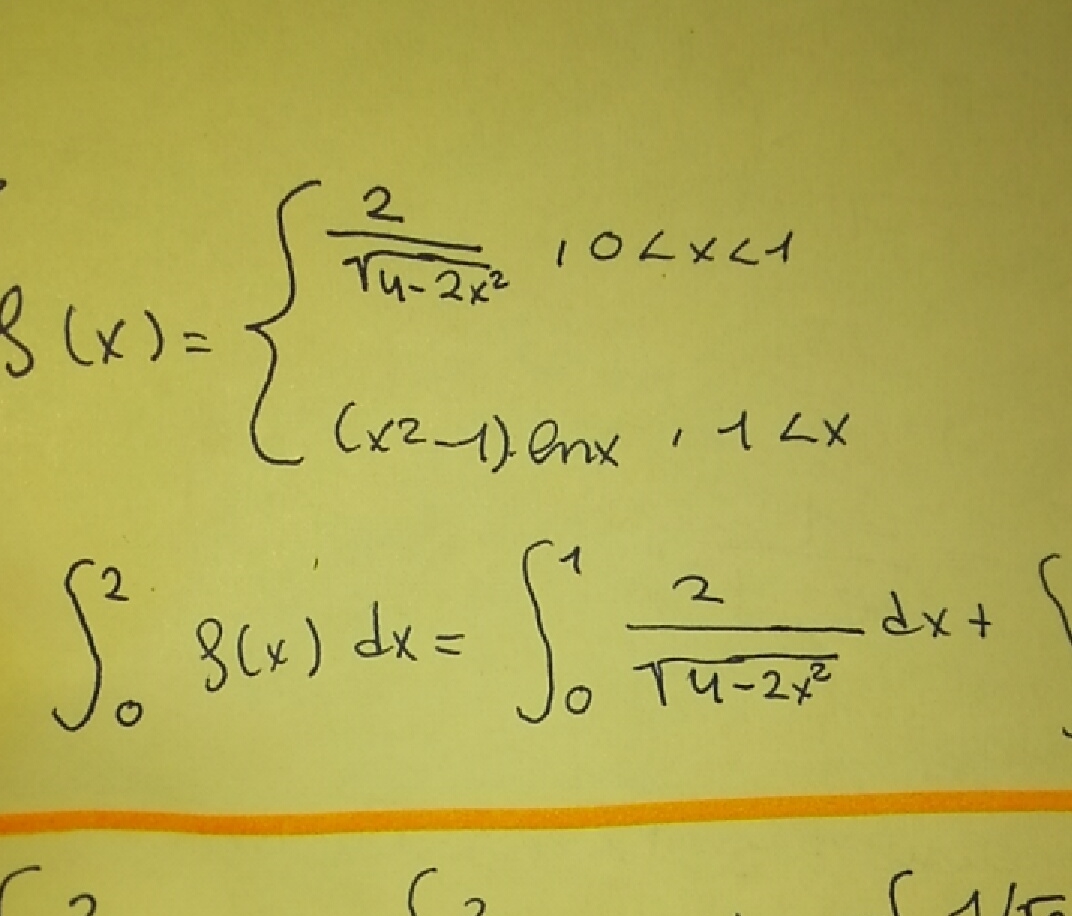 f(x) = { 2/√(4-2x²) , 0<x<1
(x²-1).lnx , 1<x
∫₀² f(x) dx = ∫₀¹ 2/√(4-2x²) dx +